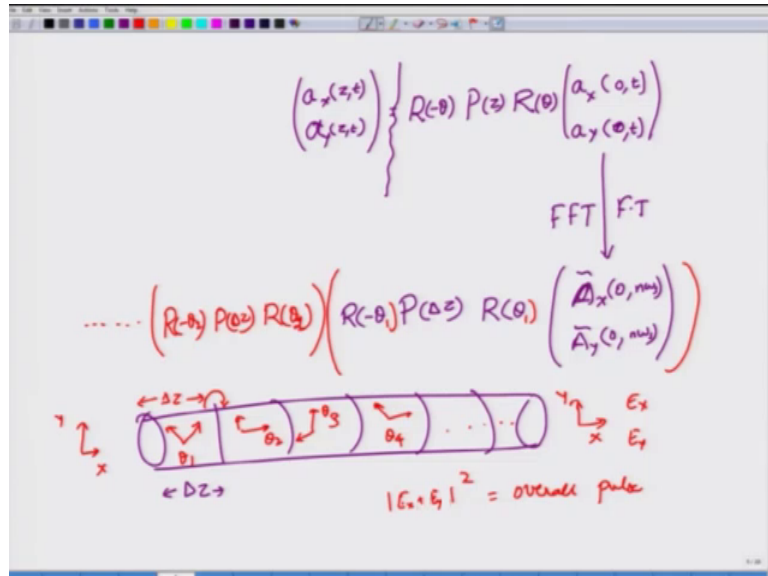 (a_x(z,t) a_y(z,t)) R(-θ) P(z) R(θ) (a_x(0,t) a_y(0,t))
FFT F.T
...... (R(-θ2) P(ΔZ) R(θ2)) (R(-θ1) P(ΔZ) R(θ1) (Ã_x(0, nω) Ã_y(0, nω)))
← ΔZ →
Y X θ1 θ2 θ3 θ4 ..... Y X Ex
Ey
← ΔZ →
|Ex + Ey|² = overall pulse